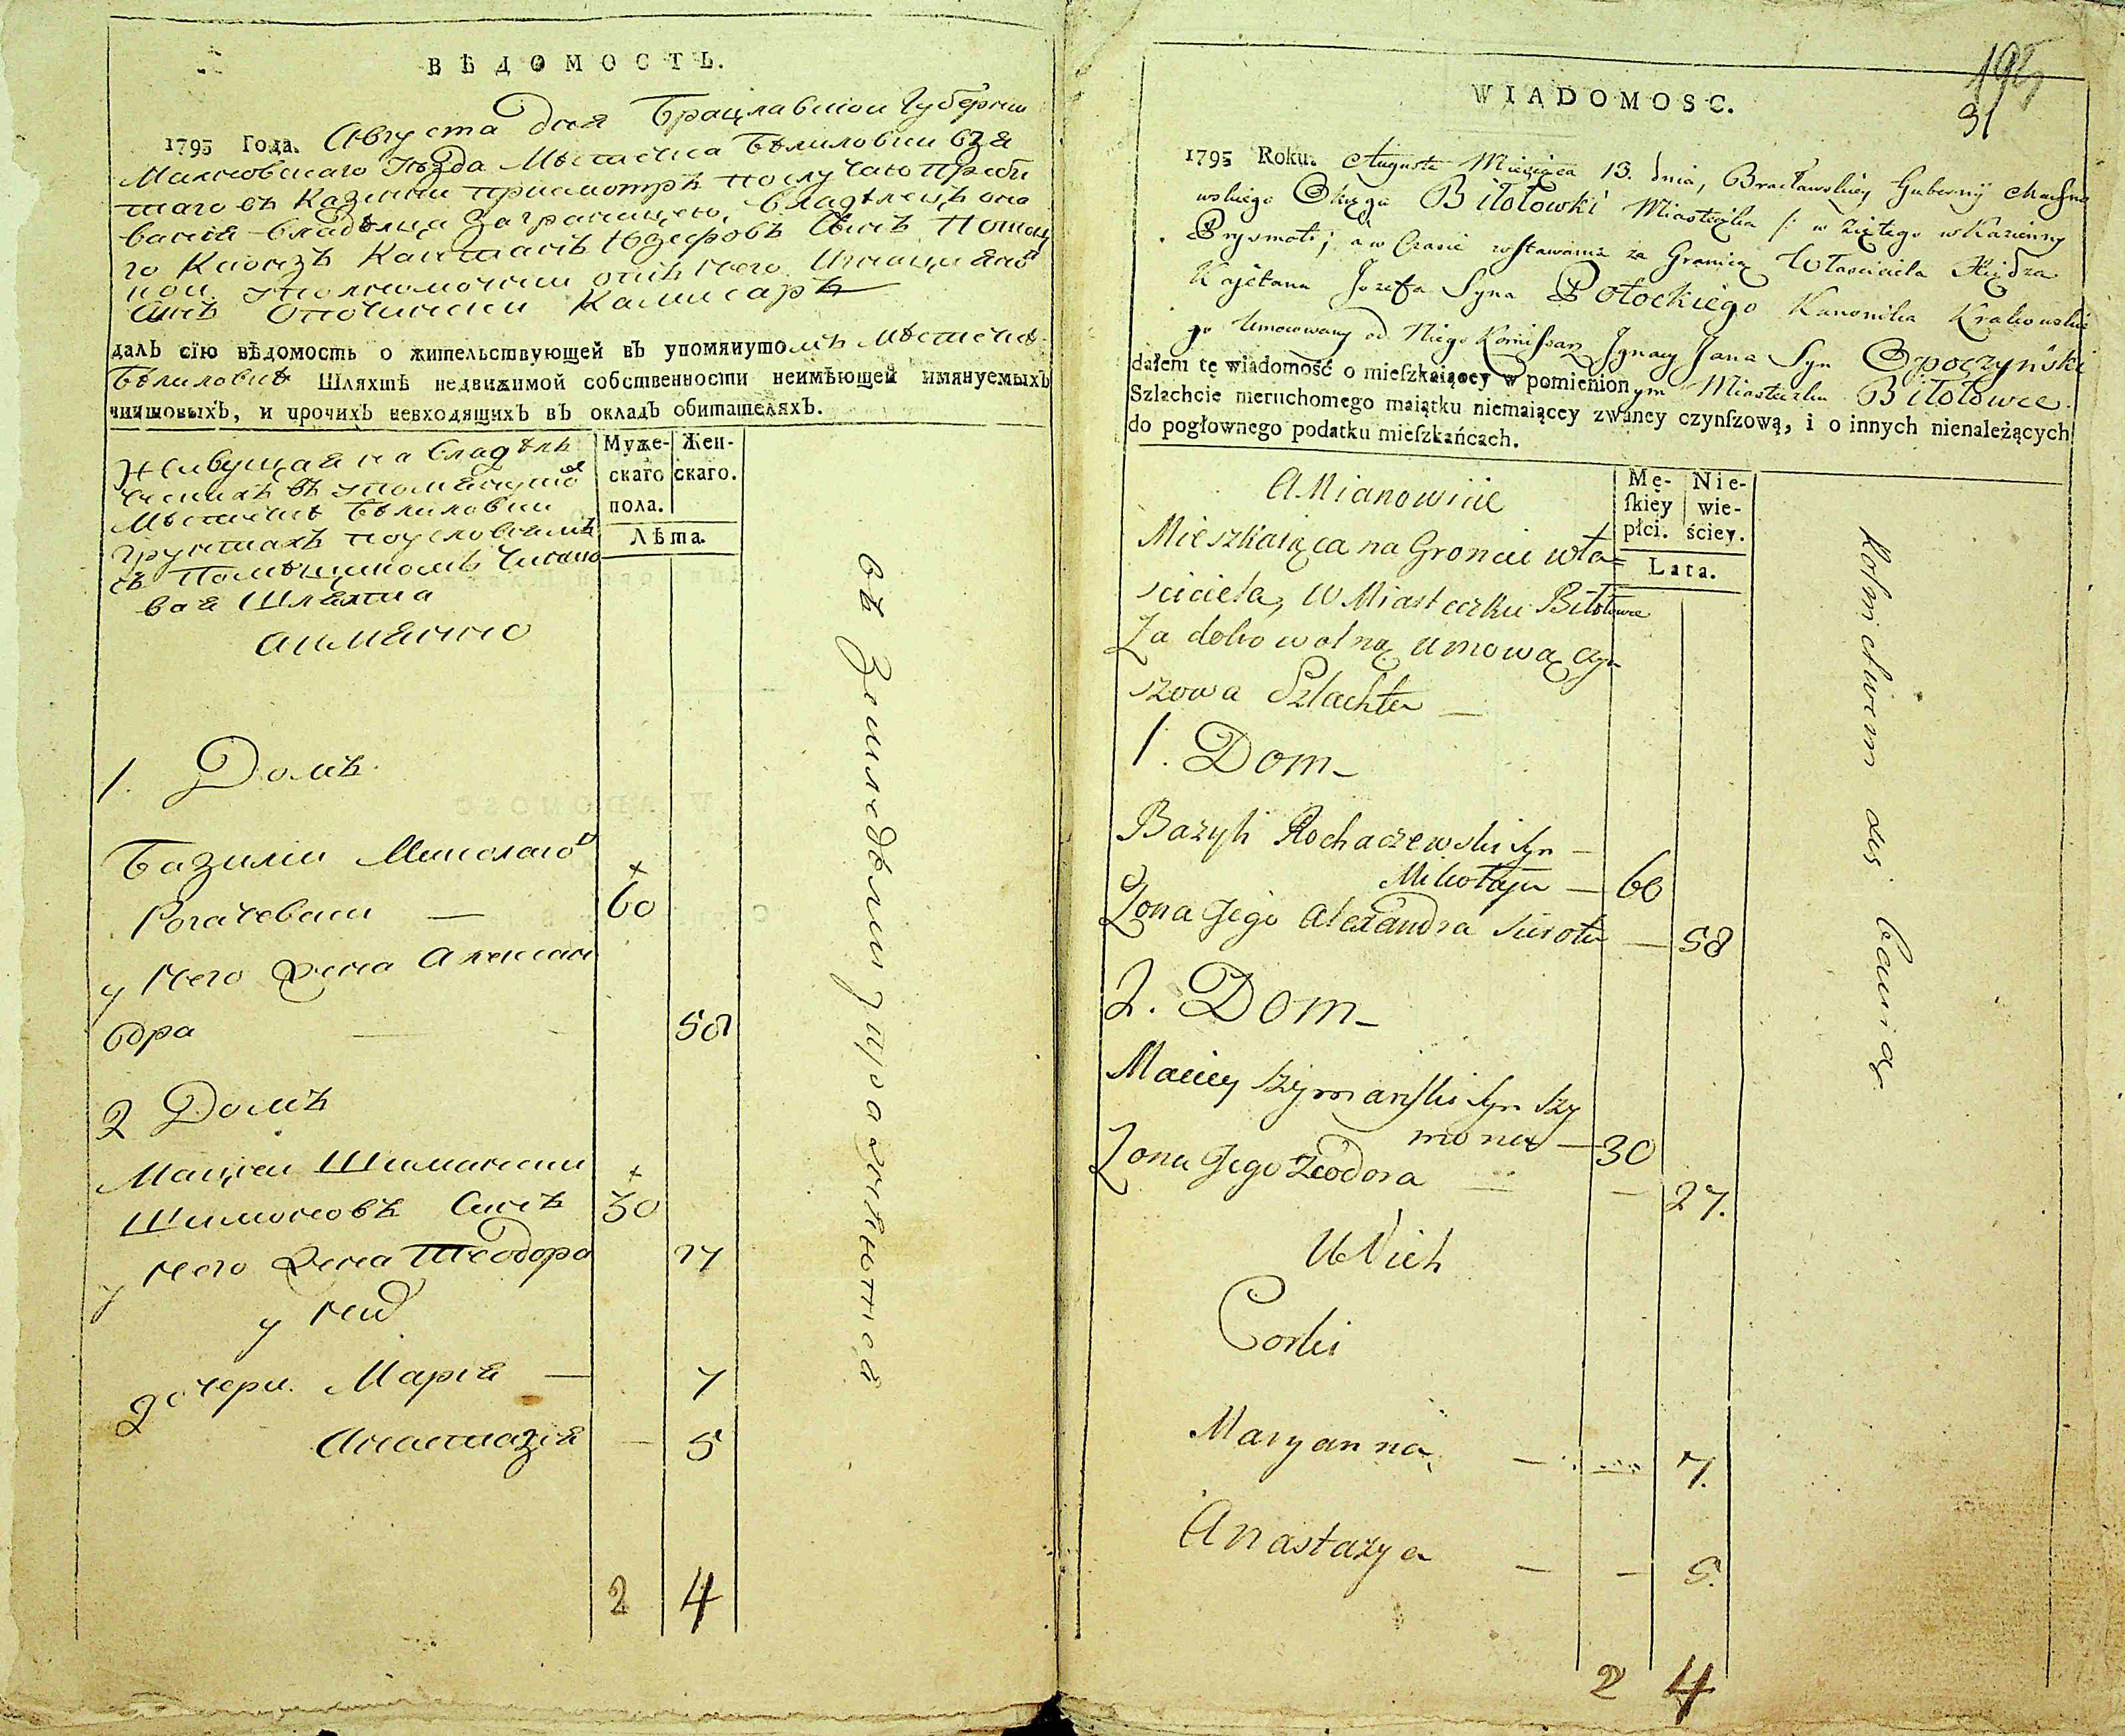 ВѢДОМОСТЬ.
1795 Года. Августа дня Брацлавской Губерніи
Махновскаго Уѣзда Мѣстечка Бѣлиловки взя
таго въ Казенни присмотръ по случаю преби
ванія владѣлца заграницею, владѣлецъ оно
го Ксіонзъ Каитанъ Юзефовъ Синъ Потоц
кои уполномочни отъ Него Игнаци Яно
Синъ Опочински Камисаръ
далъ сїю вѣдомость о жительствующей въ упомянутомъ Мѣстечкѣ
Бѣлиловкѣ Шляхтѣ недвижимой собственности неимѣющей имянуемыхъ
чиншовыхъ, и прочихъ невходящихъ въ окладъ обитателяхъ.
Живущая на владѣль
ческихъ въ упомянуто
Мѣстечкѣ Бѣлиловки
Грунтахъ по условіямъ
съ Помѣщикомъ Чиншо
вая Шляхта
аимянно
Муже-
скаго
пола.
Жен-
скаго.
Лѣта.
1. Домъ
Базилій Миколаю
Рогачевски — 60
у Него Жена Алексан
дра — 58
2 Домъ
Мацѣи Шимански
Шимоновъ Синъ 30
у Него Жена Теодора 27
у Них
дочери. Марія — 7
Анастазія — 5
2 4
въ Земледѣліи упражняются
195
31
WIADOMOSC.
1795 Roku. Augusta Miesiąca 13. dnia, Bracławskiey Gubernij Machno
wskiego Okręgu Biłołowki Miasteczka /: w ziętego w Kazienny
Prysmotr; a w Czasie zostawania za Granicą Własciciela Xiędza
Kajetana Jozefa Syna Potockiego Kanonika Krakowskie
go Umocowany od Niego Komissarz Jgnacy Jana Syn Opoczyński
dałem tę wiadomość o mieſzkaiącey w pomienionym Miasteczku Biłołowce
Szlachcie nieruchomego maiątku niemaiącey zwaney czynſzową, i o innych nienależących
do pogłownego podatku mieſzkańcach.
A Mianowicie
Mieszkaiąca na Groncie wła=
sciciela, W Miasteczku Biłołowce
Za dobrowolną umową Czyn
szowa Szlachta —
Mę-
ſkiey
płci.
Nie-
wie-
ściey.
Lata.
1. Dom —
Bazyli Rochaczewski syn —
Mikołaja — 60
Zona Jego Alexandra Sierota — 58
2. Dom —
Maciey Szymanſki syn Szy
mona — 30
Zona Jego Teodora — 27.
U Nich
Corki
Maryanna — 7.
Anastazya — — 5.
2 4
Rolnictwem się bawią